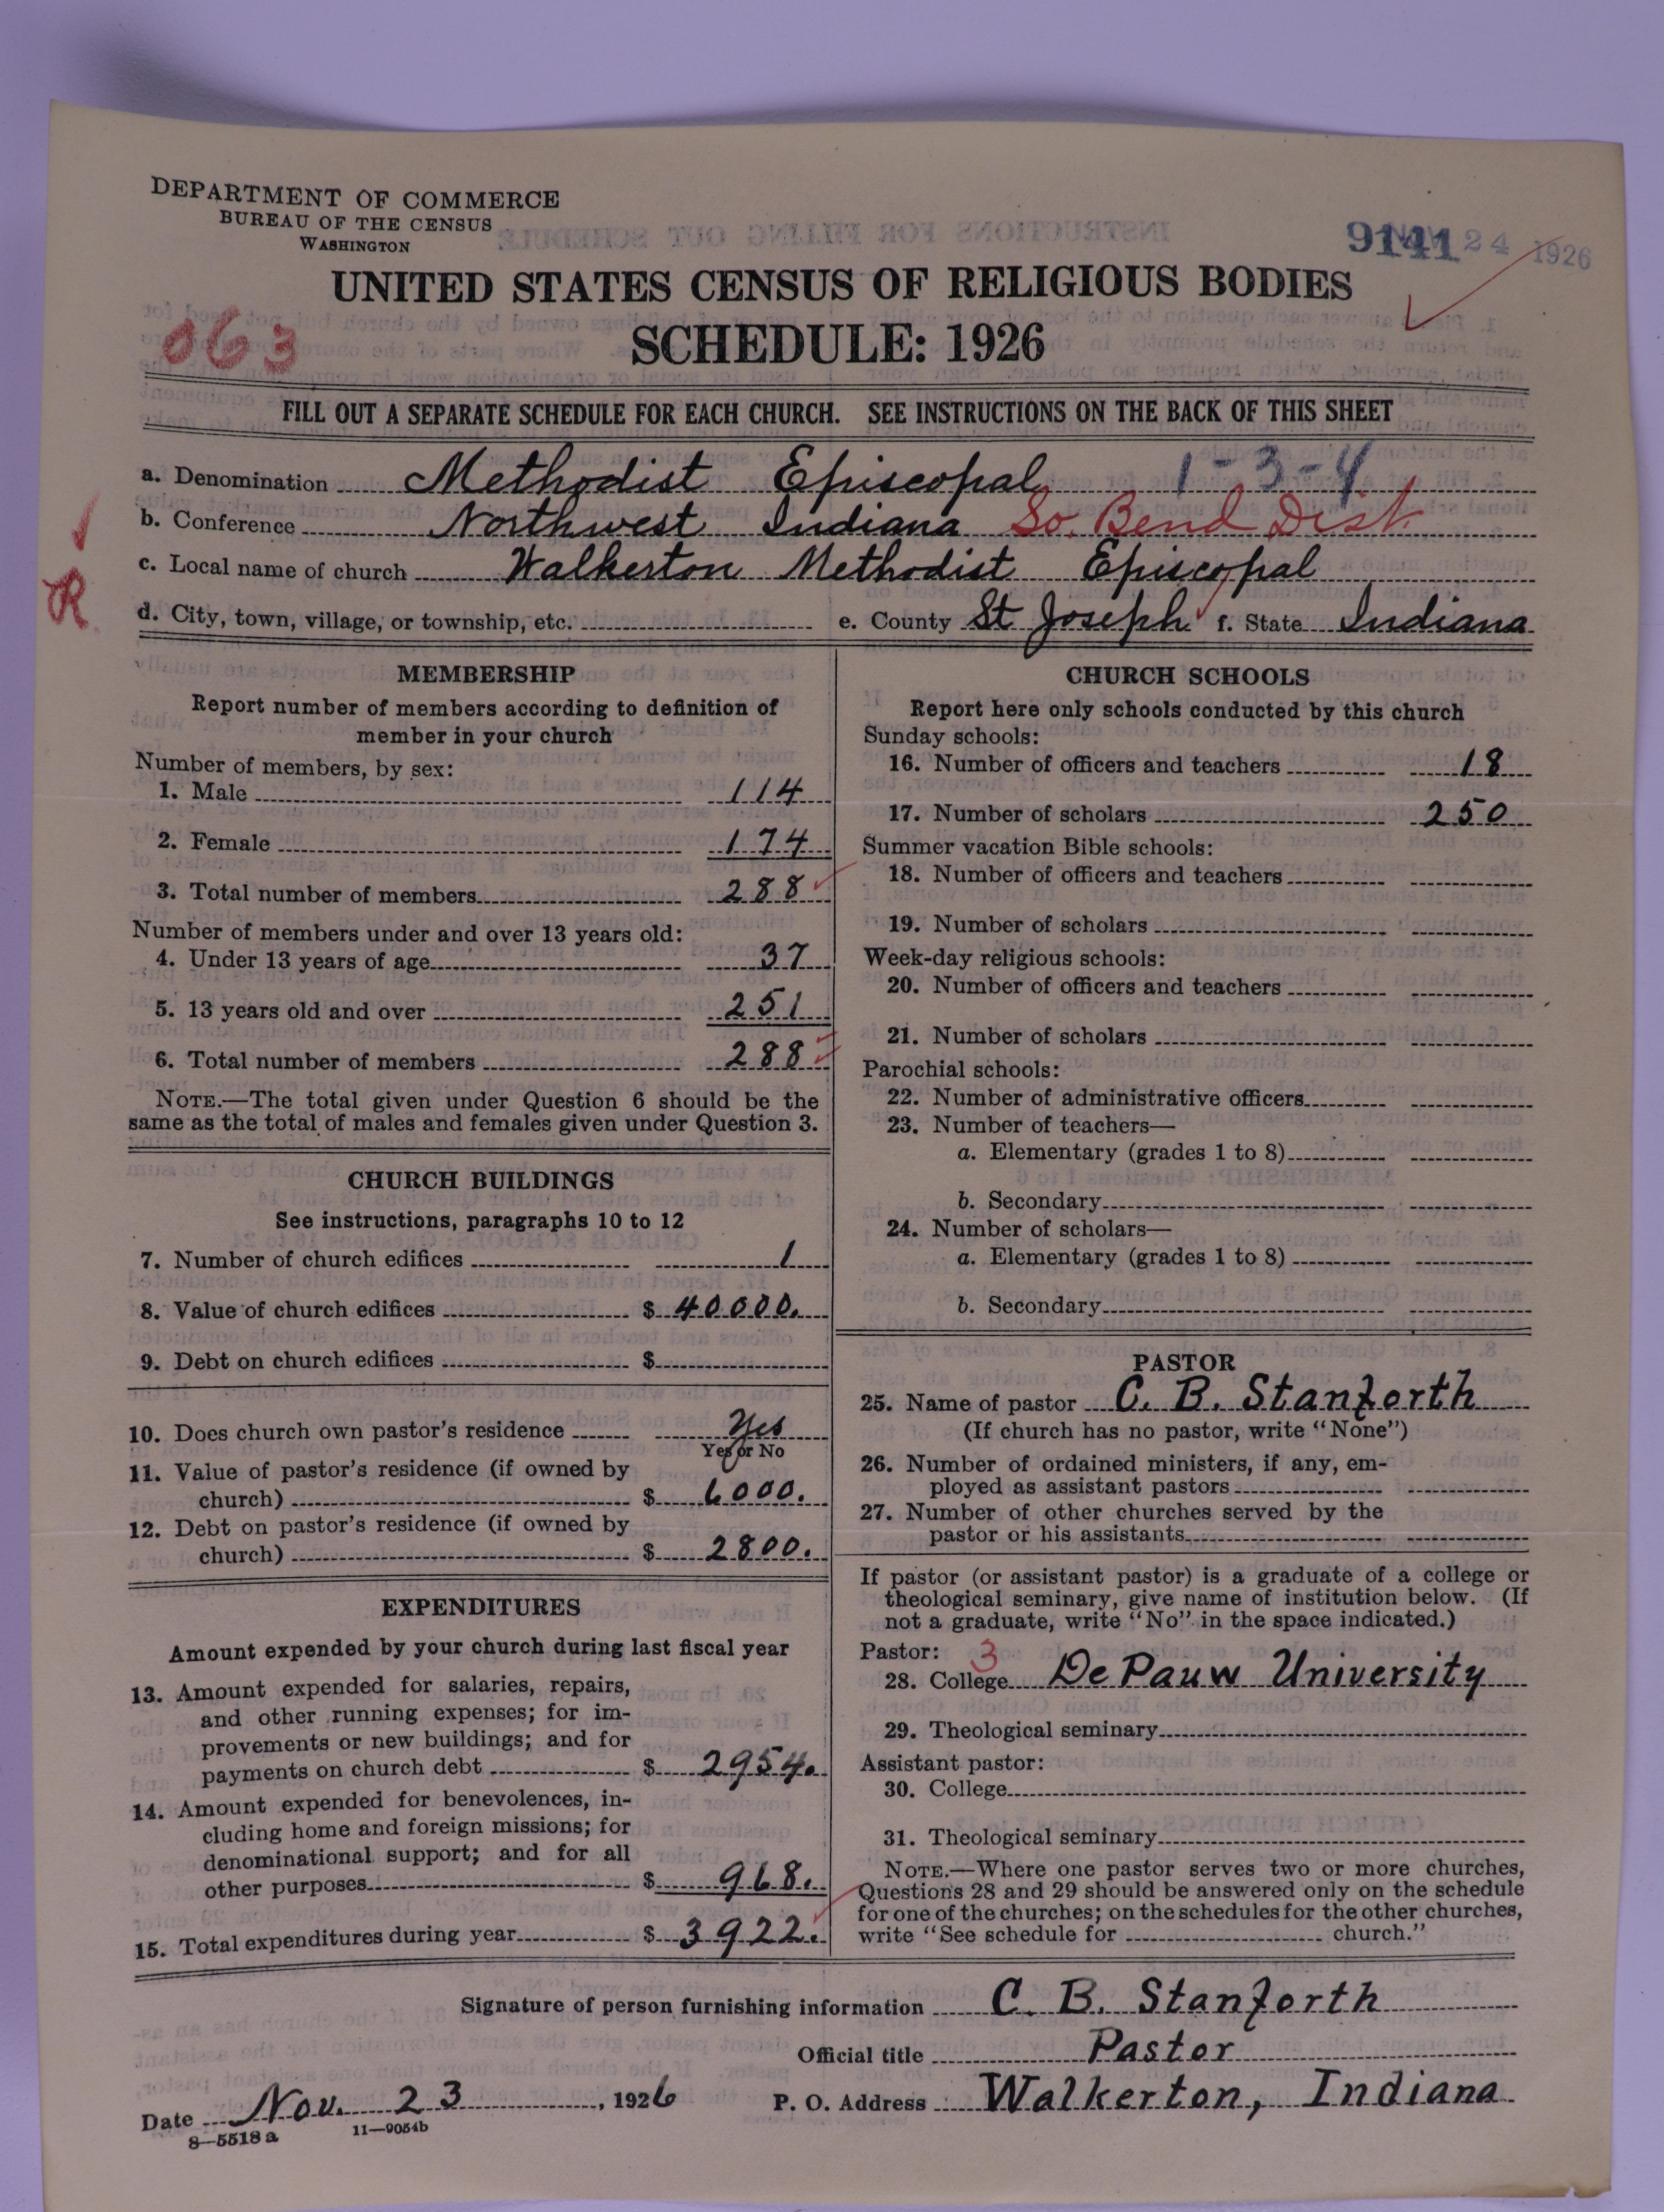 DEPARTMENT OF COMMERCE
BUREAU OF THE CENSUS
WASHINGTON
9141 24 1926
UNITED STATES CENSUS OF RELIGIOUS BODIES
063
SCHEDULE: 1926
FILL OUT A SEPARATE SCHEDULE FOR EACH CHURCH. SEE INSTRUCTIONS ON THE BACK OF THIS SHEET
a. Denomination Methodist Episcopal 1-3-4
b. Conference Northwest Indiana So. Bend Dist
c. Local name of church Walkerton Methodist Episcopal
R
d. City, town, village, or township, etc. e. County St Joseph f. State Indiana
MEMBERSHIP
Report number of members according to definition of
member in your church
Number of members, by sex:
1. Male 114
2. Female 174
3. Total number of members 288
Number of members under and over 13 years old:
4. Under 13 years of age 37
5. 13 years old and over 251
6. Total number of members 288
NOTE.—The total given under Question 6 should be the
same as the total of males and females given under Question 3.
CHURCH BUILDINGS
See instructions, paragraphs 10 to 12
7. Number of church edifices 1
8. Value of church edifices $ 40000.
9. Debt on church edifices $
10. Does church own pastor's residence Yes
Yes or No
11. Value of pastor's residence (if owned by
church) $ 6000.
12. Debt on pastor's residence (if owned by
church) $ 2800.
EXPENDITURES
Amount expended by your church during last fiscal year
13. Amount expended for salaries, repairs,
and other running expenses; for im-
provements or new buildings; and for
payments on church debt $ 2954.
14. Amount expended for benevolences, in-
cluding home and foreign missions; for
denominational support; and for all
other purposes $ 968.
15. Total expenditures during year $ 3922.
CHURCH SCHOOLS
Report here only schools conducted by this church
Sunday schools:
16. Number of officers and teachers 18
17. Number of scholars 250
Summer vacation Bible schools:
18. Number of officers and teachers
19. Number of scholars
Week-day religious schools:
20. Number of officers and teachers
21. Number of scholars
Parochial schools:
22. Number of administrative officers
23. Number of teachers—
a. Elementary (grades 1 to 8)
b. Secondary
24. Number of scholars—
a. Elementary (grades 1 to 8)
b. Secondary
PASTOR
25. Name of pastor C. B. Stanforth
(If church has no pastor, write "None")
26. Number of ordained ministers, if any, em-
ployed as assistant pastors
27. Number of other churches served by the
pastor or his assistants
If pastor (or assistant pastor) is a graduate of a college or
theological seminary, give name of institution below. (If
not a graduate, write "No" in the space indicated.)
Pastor: 3
28. College De Pauw University
29. Theological seminary
Assistant pastor:
30. College
31. Theological seminary
NOTE.—Where one pastor serves two or more churches,
Questions 28 and 29 should be answered only on the schedule
for one of the churches; on the schedules for the other churches,
write "See schedule for church."
Signature of person furnishing information C. B. Stanforth
Official title Pastor
Date Nov. 23, 1926 P. O. Address Walkerton, Indiana
8—5518 a 11—9054b